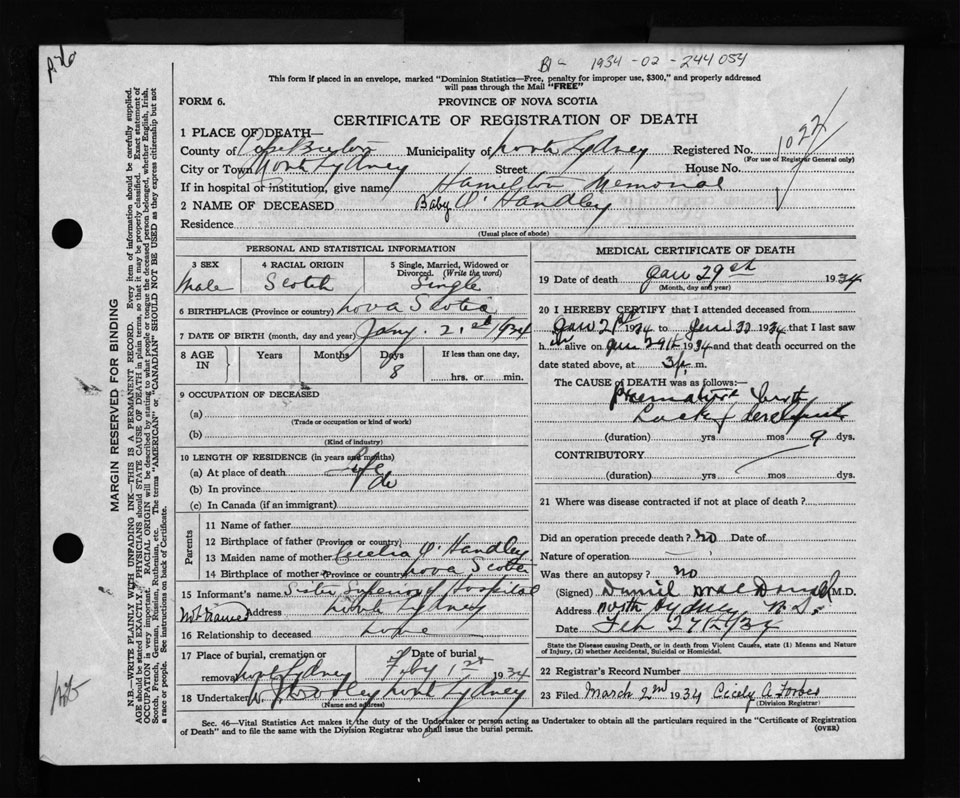 B/c 1934-02-244054
This form if placed in an envelope, marked "Dominion Statistics—Free, penalty for improper use, $300," and properly addressed
will pass through the Mail "FREE"
FORM 6.
PROVINCE OF NOVA SCOTIA
CERTIFICATE OF REGISTRATION OF DEATH
MARGIN RESERVED FOR BINDING
N.B.—WRITE PLAINLY WITH UNFADING INK—THIS IS A PERMANENT RECORD. Every item of information should be carefully supplied.
AGE should be stated EXACTLY. PHYSICIANS should STATE CAUSE OF DEATH in plain terms, so that it may be properly classified. Exact statement of
OCCUPATION is very important. RACIAL ORIGIN will be described by stating to what people or tongue the deceased person belonged, whether English, Irish,
Scotch, French, German, Russian, Ruthenian, etc. The terms "AMERICAN" or "CANADIAN" SHOULD NOT BE USED as they express citizenship but not
a race or people. See instructions on back of Certificate.
1 PLACE OF DEATH—
County of Cape Breton Municipality of North Sydney Registered No. 1022
(For use of Registrar General only)
City or Town North Sydney Street House No.
If in hospital or institution, give name Hamilton Memorial
2 NAME OF DECEASED Baby O'Handley
Residence
(Usual place of abode)
PERSONAL AND STATISTICAL INFORMATION
3 SEX
Male
4 RACIAL ORIGIN
Scotch
5 Single, Married, Widowed or
Divorced. (Write the word)
Single
6 BIRTHPLACE (Province or country) Nova Scotia
7 DATE OF BIRTH (month, day and year) Jany. 21st 1934
8 AGE IN Years Months Days 8 If less than one day, hrs. or min.
9 OCCUPATION OF DECEASED
(a)
(Trade or occupation or kind of work)
(b)
(Kind of industry)
10 LENGTH OF RESIDENCE (in years and months)
(a) At place of death Life
(b) In province do
(c) In Canada (if an immigrant)
Parents
11 Name of father
12 Birthplace of father (Province or country)
13 Maiden name of mother Cecelia O'Handley
14 Birthplace of mother (Province or country) Nova Scotia
15 Informant's name Sister Superior of Hospital
Not Named Address North Sydney
16 Relationship to deceased none
17 Place of burial, cremation or Date of burial
removal North Sydney Feby 1st 1934
18 Undertaker North Sydney
(Name and address)
MEDICAL CERTIFICATE OF DEATH
19 Date of death Jan 29th 1934
(Month, day and year)
20 I HEREBY CERTIFY that I attended deceased from
Jan 21st 1934 to Jan 1934 that I last saw
h im alive on Jan 29th 1934 and that death occurred on
date stated above, at 3 p. m.
The CAUSE OF DEATH was as follows:—
Premature birth
Lack of development
(duration) yrs mos 9 dys.
CONTRIBUTORY
(duration) yrs mos dys.
21 Where was disease contracted if not at place of death ?
Did an operation precede death ? no Date of
Nature of operation
Was there an autopsy ? no
(Signed) Daniel MacDonald M.D.
Address North Sydney N.S.
Date Feb 27th/34
State the Disease causing Death, or in death from Violent Causes, state (1) Means and Nature
of Injury, (2) whether Accidental, Suicidal or Homicidal.
22 Registrar's Record Number
23 Filed March 2nd 1934 Cicely A. Forbes
(Division Registrar)
Sec. 46—Vital Statistics Act makes it the duty of the Undertaker or person acting as Undertaker to obtain all the particulars required in the "Certificate of Registration
of Death" and to file the same with the Division Registrar who shall issue the burial permit.
(OVER)